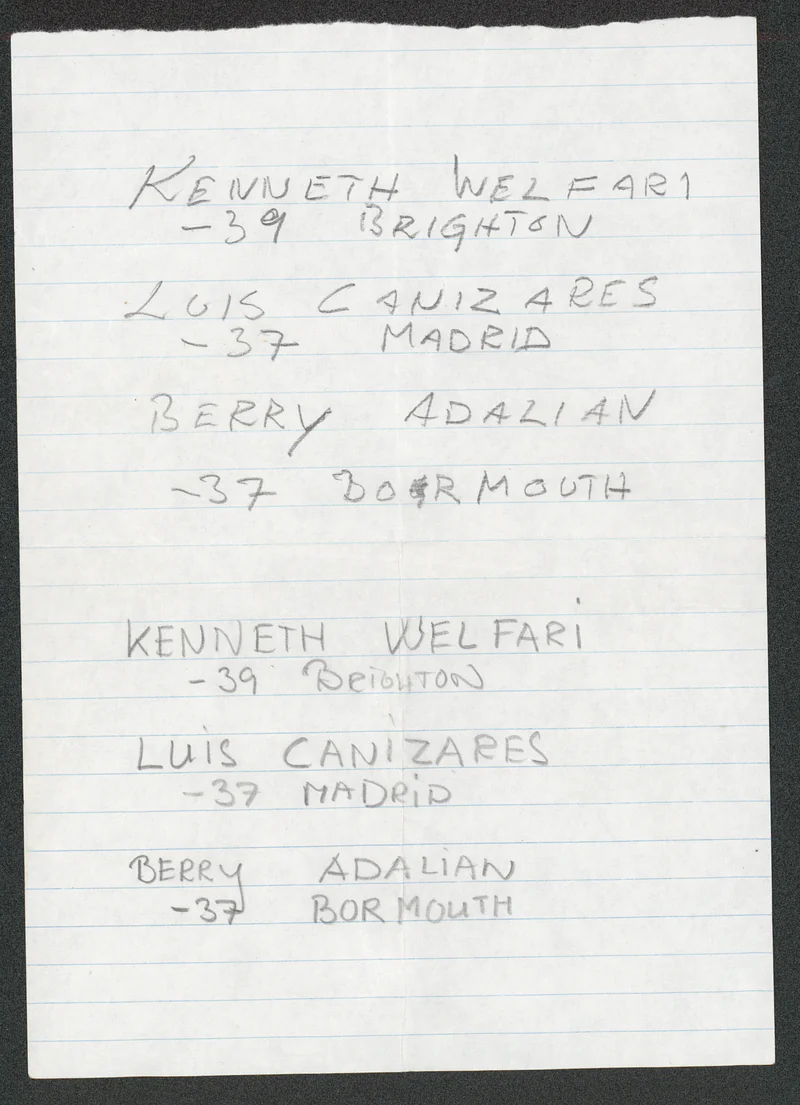 KENNETH WELFARI
-39 BRIGHTON
LUIS CANIZARES
-37 MADRID
BERRY ADALIAN
-37 BORMOUTH
KENNETH WELFARI
-39 BRIGHTON
LUIS CANIZARES
-37 MADRID
BERRY ADALIAN
-37 BORMOUTH